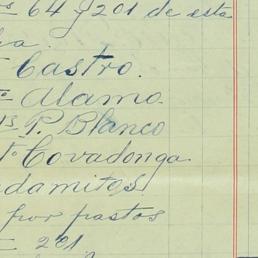 64 y 201 de esta
Castro.
Alamo.
P. Blanco
Covadonga
damitos
por pastos
= 201